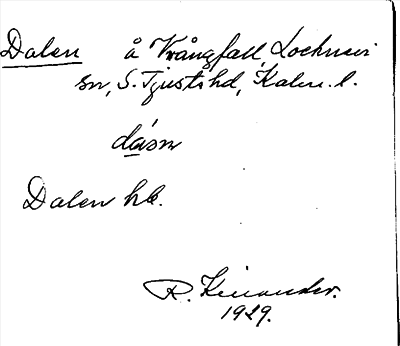 Dalen å Vrångfall, Locknevi
sn, S. Tjusts hd, Kalm. l.
dásn
Dalen hle.
R. Kinander.
1929.